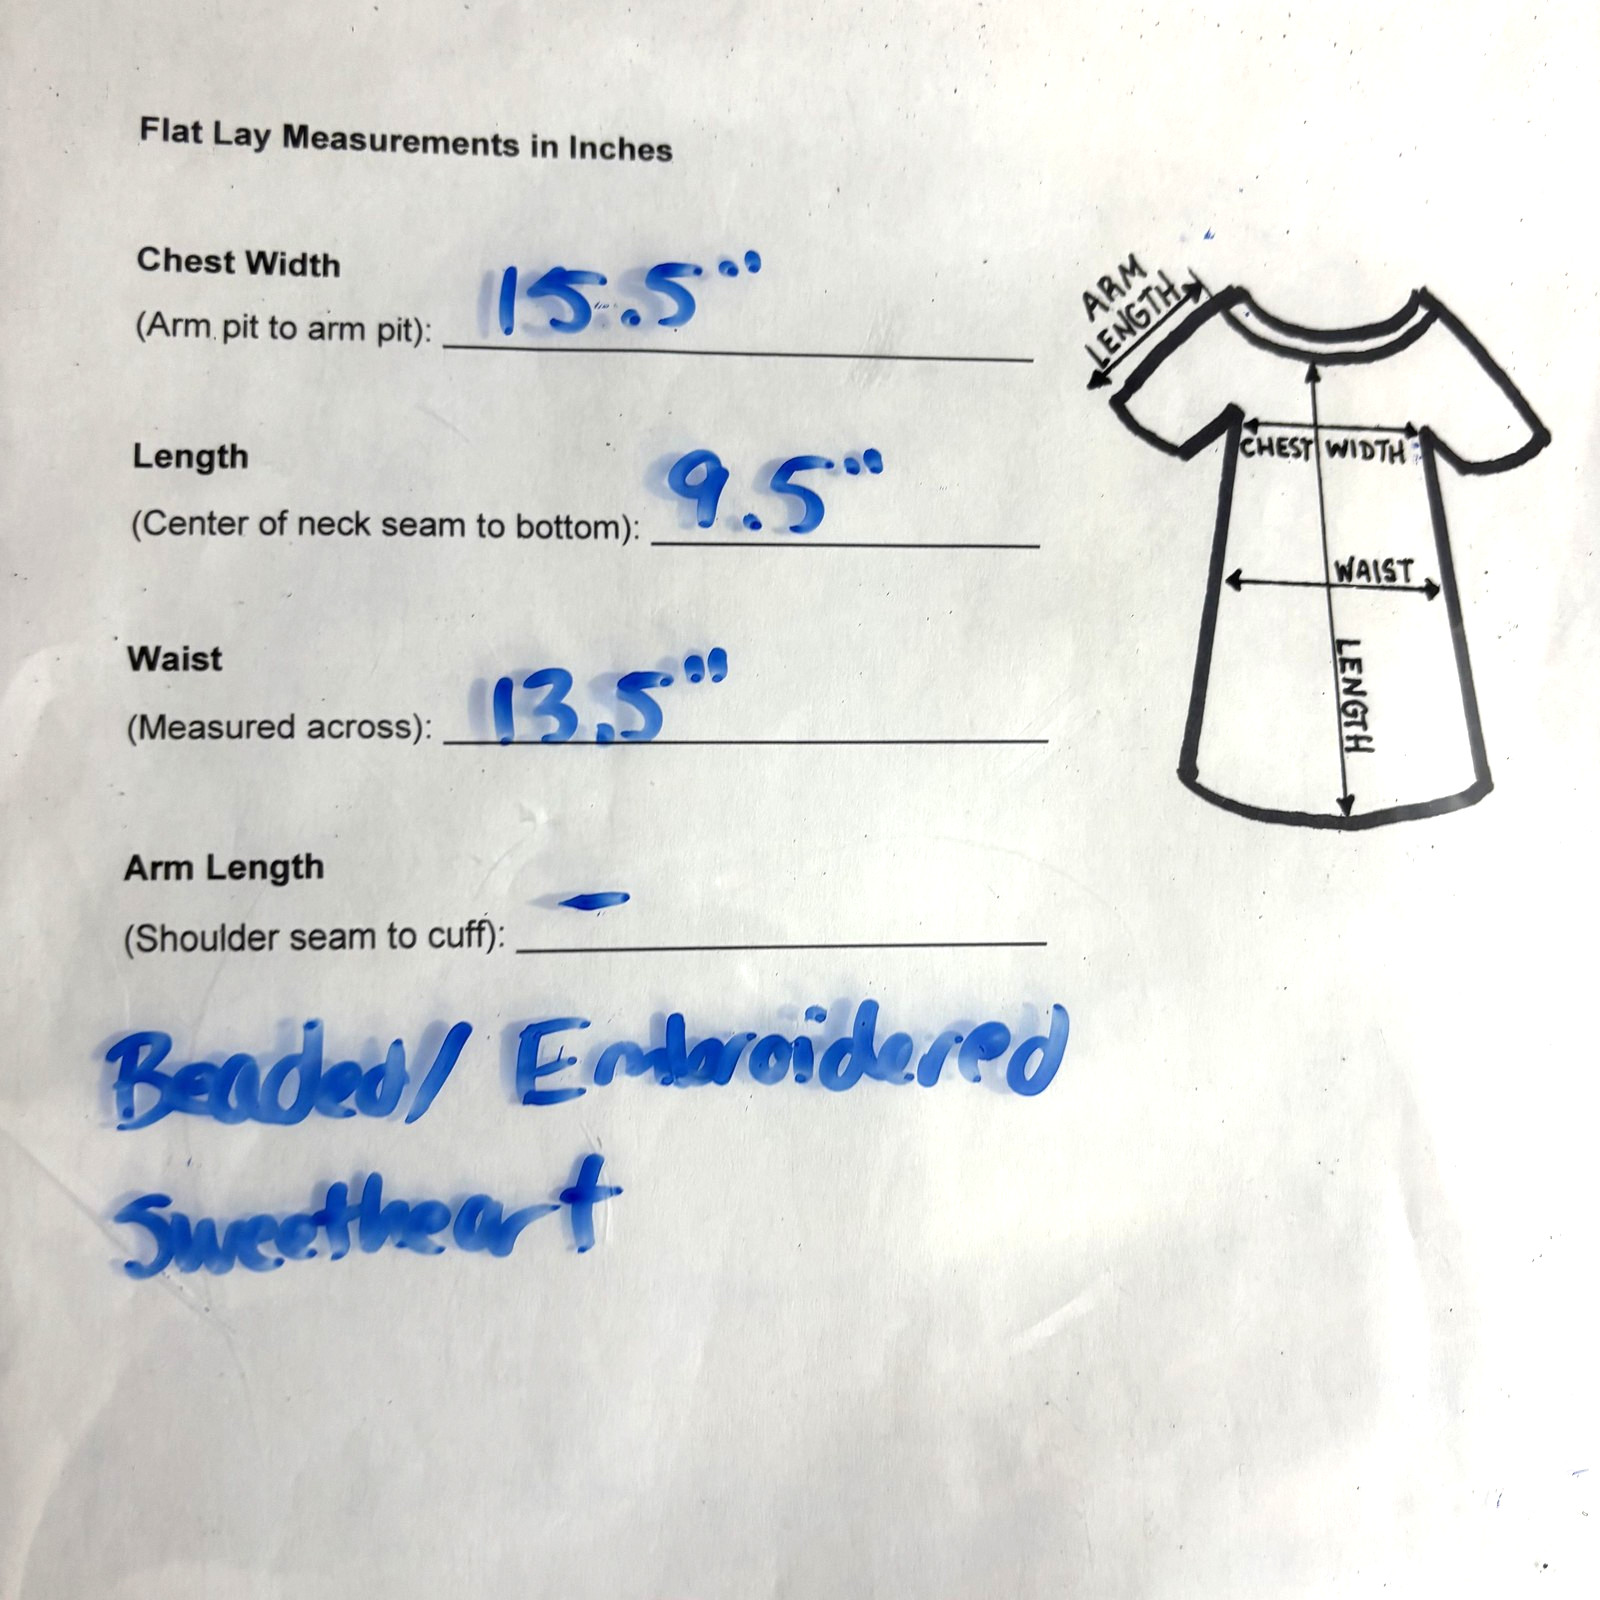 Flat Lay Measurements in Inches
Chest Width
(Arm pit to arm pit): 15.5"
Length
(Center of neck seam to bottom): 9.5"
Waist
(Measured across): 13.5"
Arm Length
(Shoulder seam to cuff): -
Beaded/ Embroidered
Sweetheart
ARM
LENGTH
CHEST WIDTH
WAIST
LENGTH